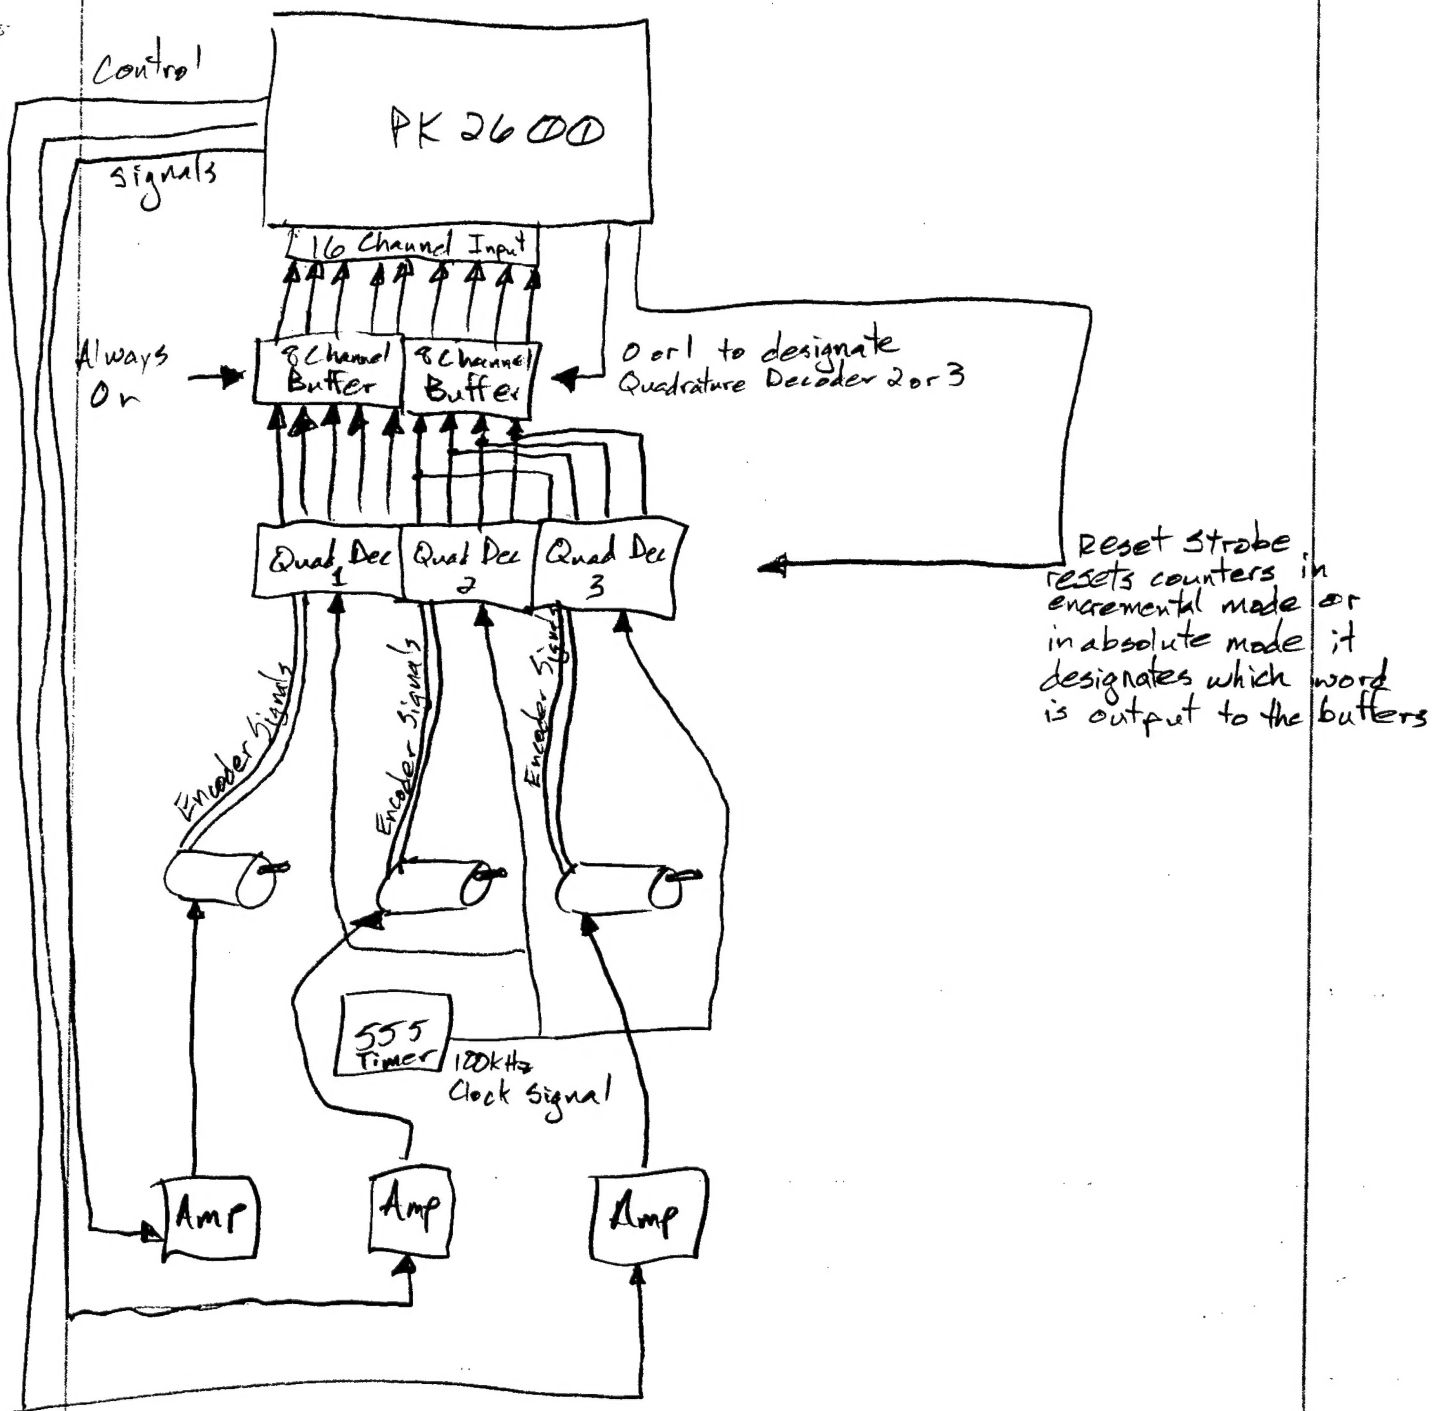 Control
PK 2600
signals
16 Channel Input
Always
On
8 Channel
Buffer
8 Channel
Buffer
0 or 1 to designate
Quadrature Decoder 2 or 3
Quad Dec
1
Quad Dec
2
Quad Dec
3
Reset Strobe
resets counters in
encremental mode or
in absolute mode it
designates which word
is output to the buffers
Encoder Signals
Encoder Signals
Encoder Signals
555
Timer
100kHz
Clock Signal
Amp
Amp
Amp